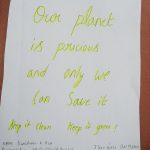 Our planet
is precious
and only we
can Save it
Keep it clean Keep it green!